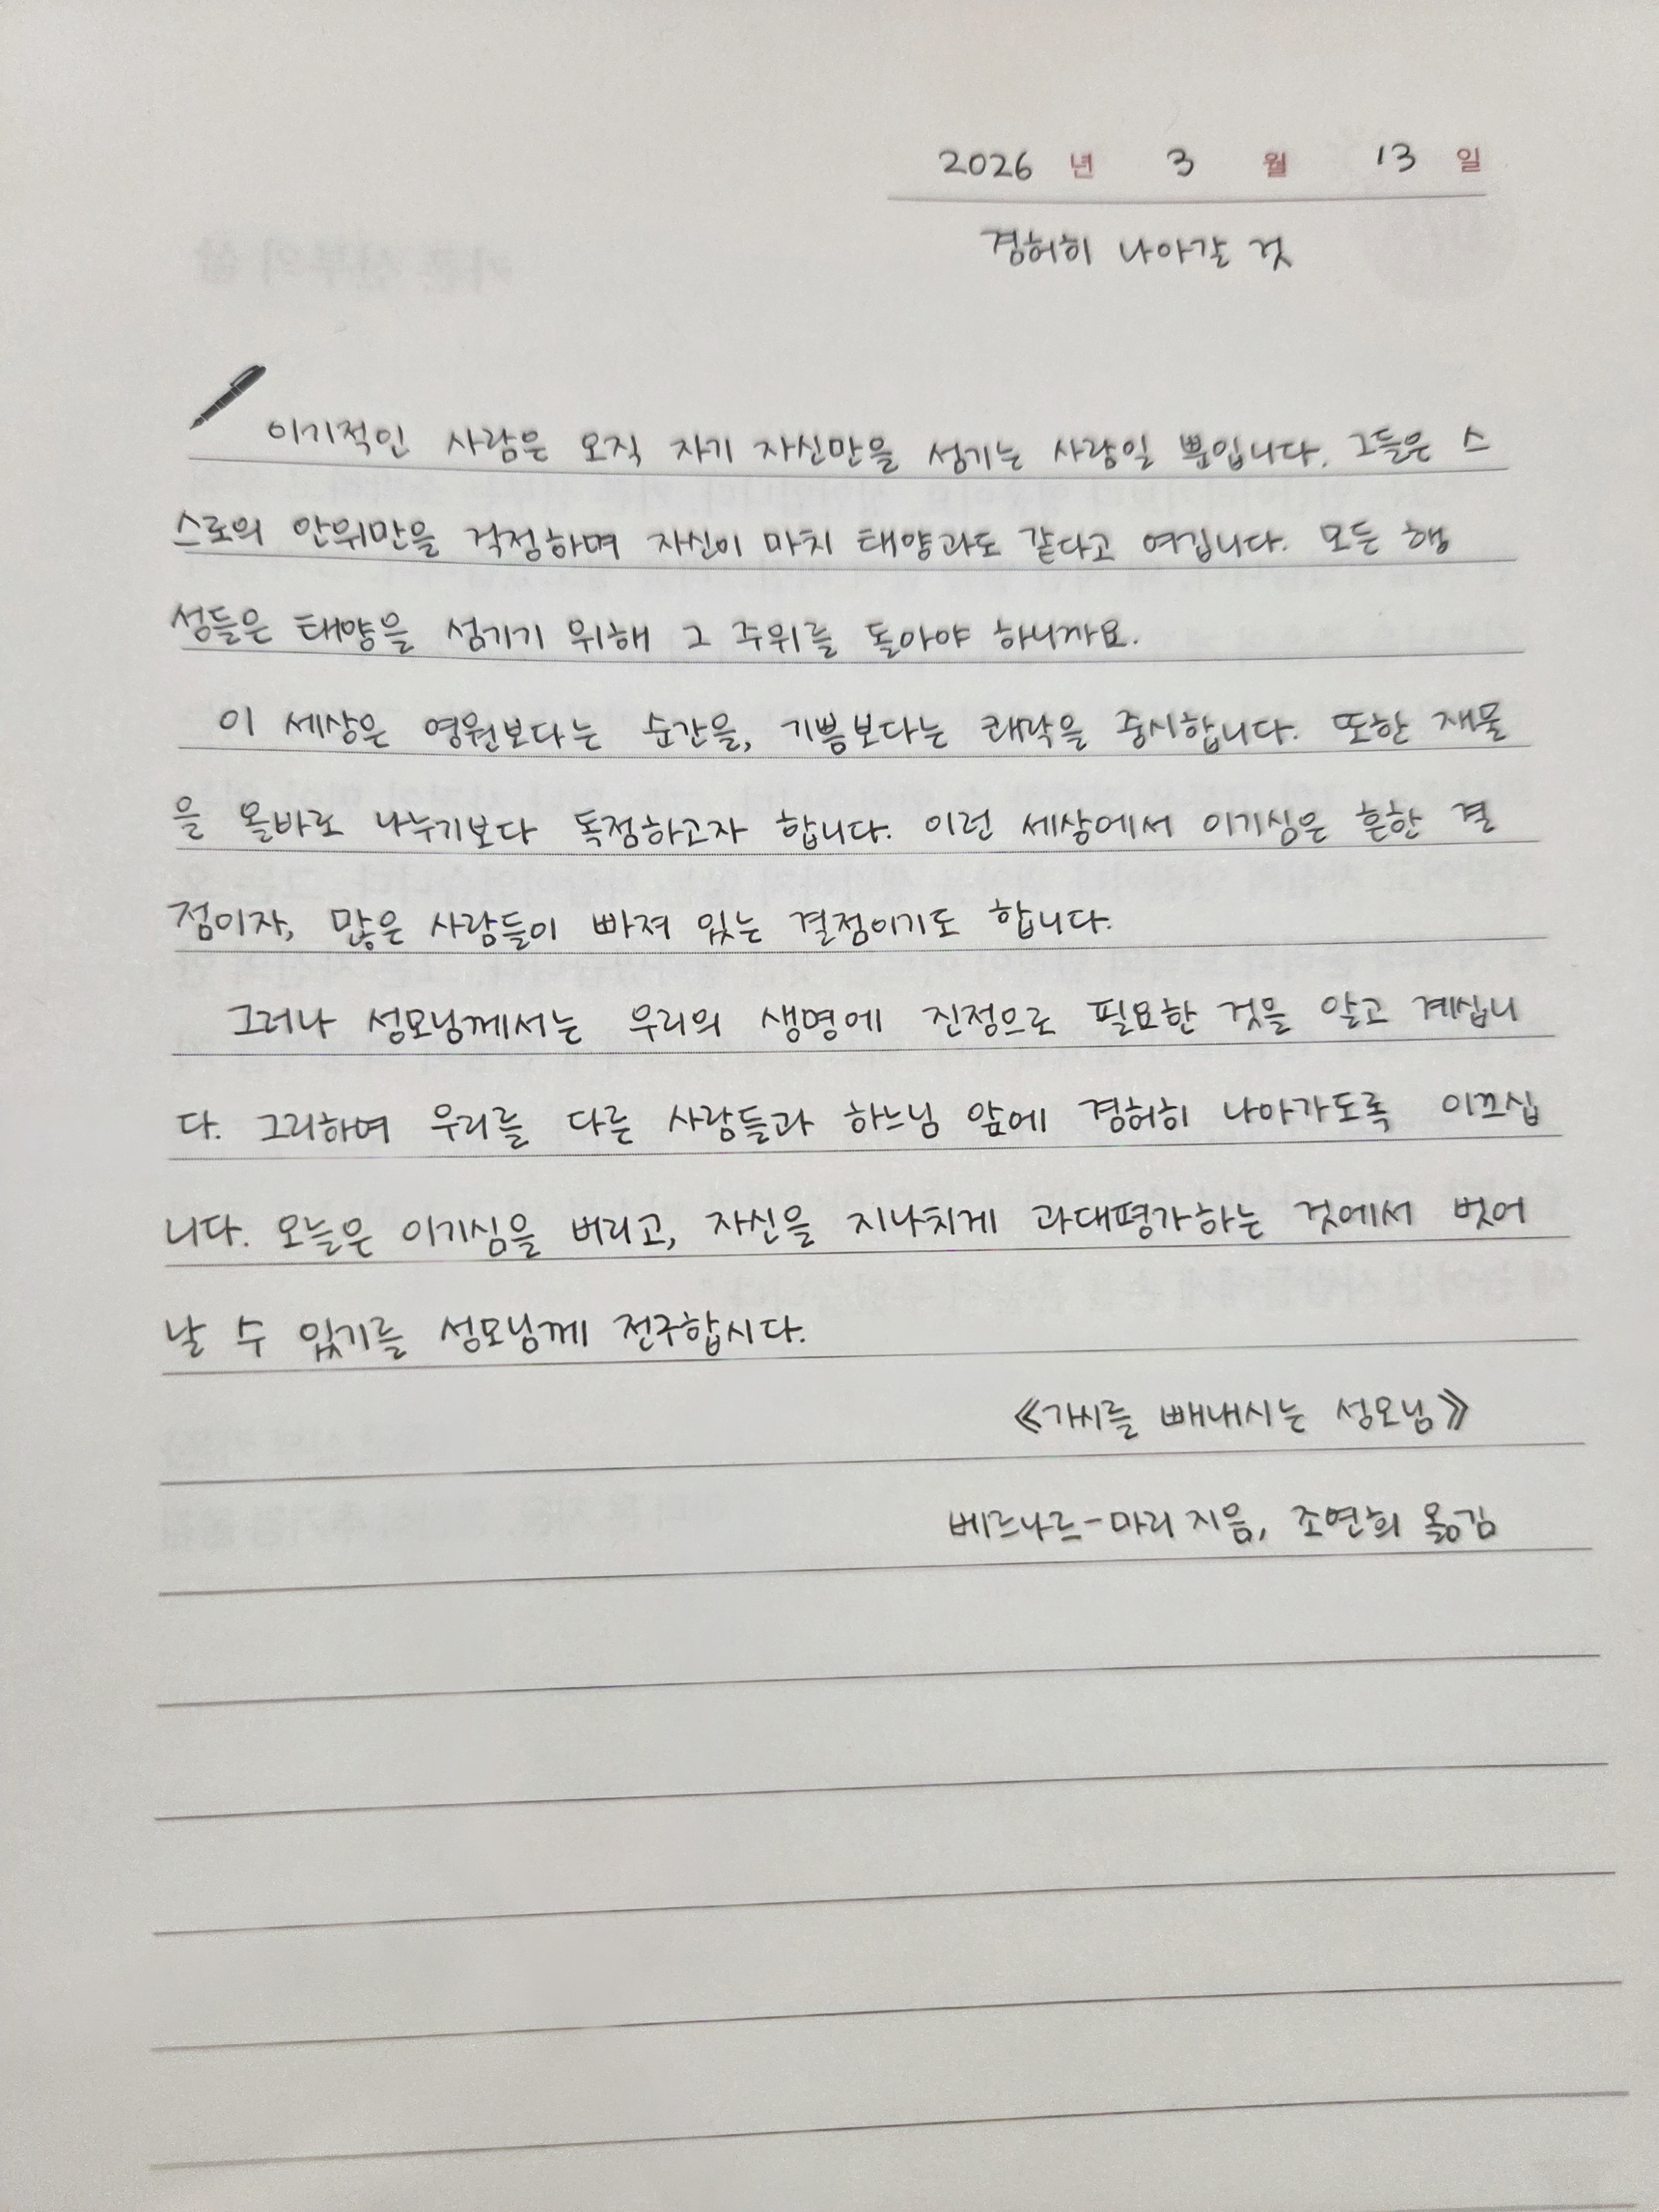 2026 년 3 월 13 일
겸허히 나아갈 것
이기적인 사람은 오직 자기 자신만을 섬기는 사람일 뿐입니다. 그들은 스
스로의 안위만을 걱정하며 자신이 마치 태양과도 같다고 여깁니다. 모든 행
성들은 태양을 섬기기 위해 그 주위를 돌아야 하니까요.
이 세상은 영원보다는 순간을, 기쁨보다는 쾌락을 중시합니다. 또한 재물
을 올바로 나누기보다 독점하고자 합니다. 이런 세상에서 이기심은 흔한 결
점이자, 많은 사람들이 빠져 있는 결점이기도 합니다.
그러나 성모님께서는 우리의 생명에 진정으로 필요한 것을 알고 계십니
다. 그리하여 우리를 다른 사람들과 하느님 앞에 겸허히 나아가도록 이끄십
니다. 오늘은 이기심을 버리고, 자신을 지나치게 과대평가하는 것에서 벗어
날 수 있기를 성모님께 전구합시다.
《가시를 빼내시는 성모님》
베르나르-마리 지음, 조연희 옮김